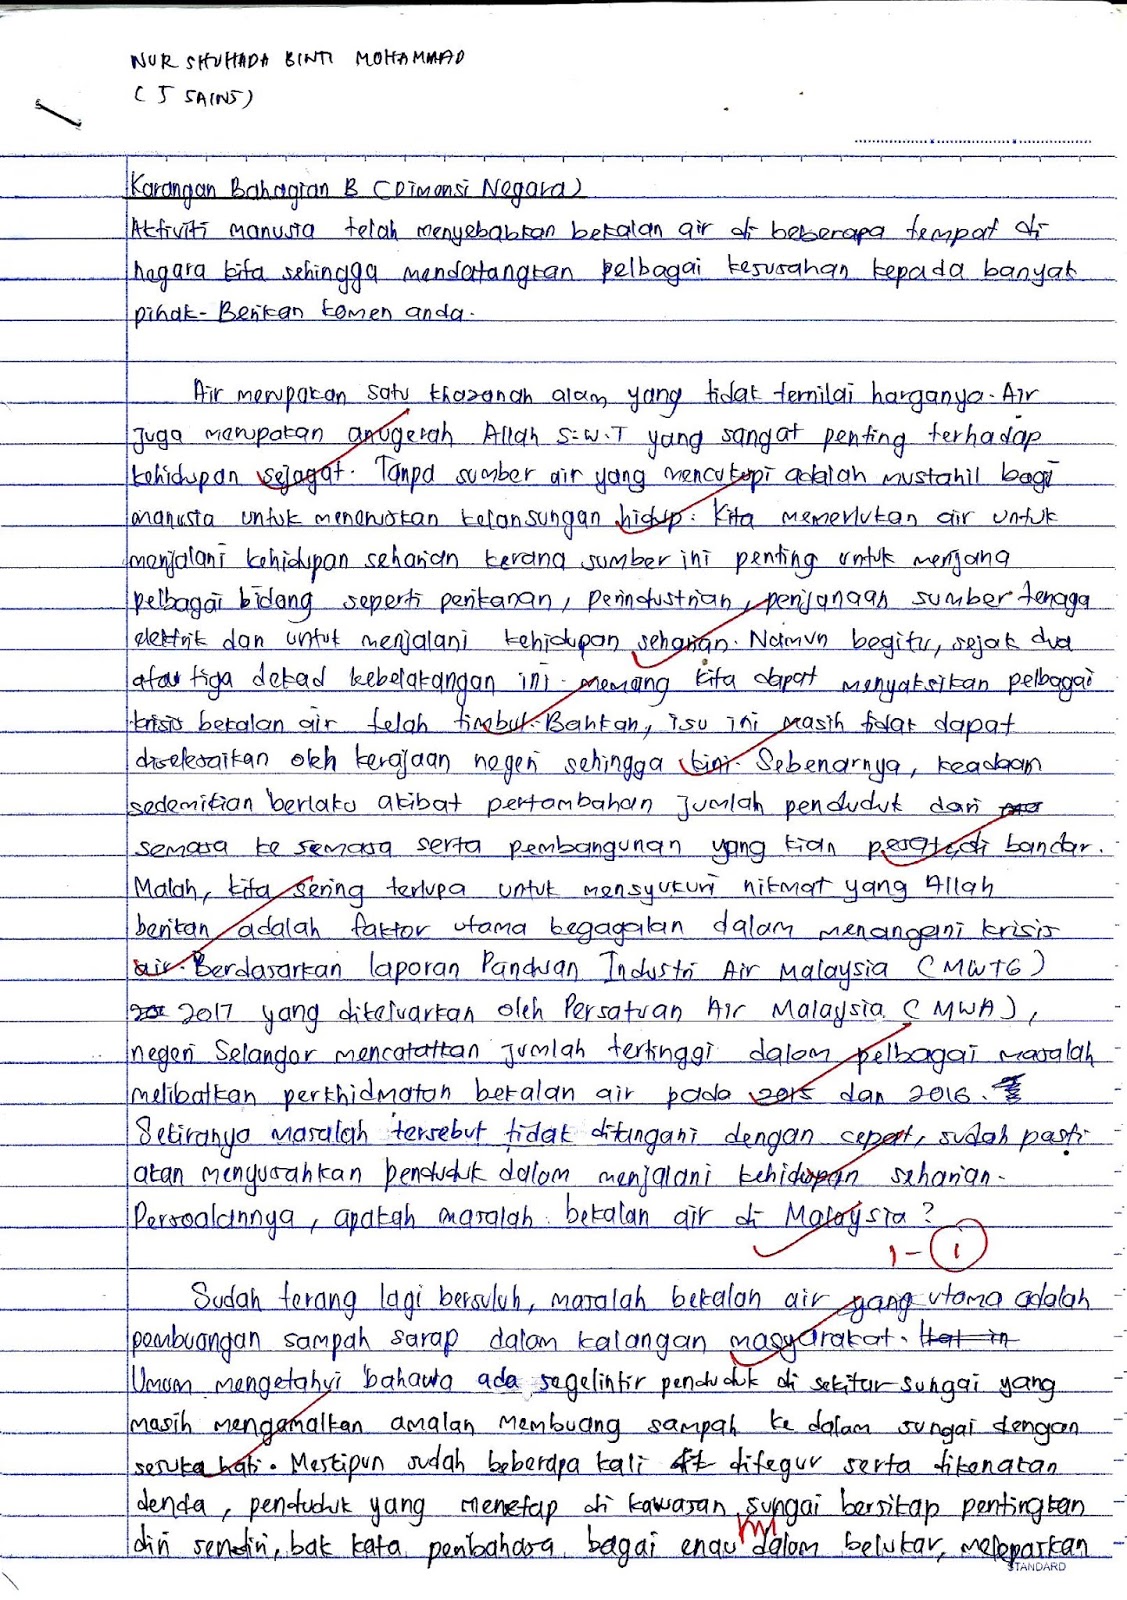 NUR SHUHADA BINTI MOHAMMAD
(5 SAINS)
Karangan Bahagian B (Dimensi Negara)
Aktiviti manusia telah menyebabkan bekalan air di beberapa tempat di
negara kita sehingga mendatangkan pelbagai kesusahan kepada banyak
pihak. Berikan komen anda.
Air merupakan satu khazanah alam yang tidak ternilai harganya. Air
juga merupakan anugerah Allah S.W.T yang sangat penting terhadap
kehidupan sejagat. Tanpa sumber air yang mencukupi adalah mustahil bagi
manusia untuk meneruskan kelansungan hidup. Kita memerlukan air untuk
menjalani kehidupan seharian kerana sumber ini penting untuk menjana
pelbagai bidang seperti perikanan, perindustrian, penjanaan sumber tenaga
elektrik dan untuk menjalani kehidupan seharian. Namun begitu, sejak dua
atau tiga dekad kebelakangan ini memang kita dapat menyaksikan pelbagai
krisis bekalan air telah timbul. Bahkan, isu ini masih tidak dapat
diselesaikan oleh kerajaan negeri sehingga kini. Sebenarnya, keadaan
sedemikian berlaku akibat pertambahan jumlah penduduk dari
semasa ke semasa serta pembangunan yang kian pesat di bandar.
Malah, kita sering terlupa untuk mensyukuri nikmat yang Allah
berikan adalah faktor utama kegagalan dalam menangani krisis
air. Berdasarkan laporan Panduan Industri Air Malaysia (MWTG)
2017 yang dikeluarkan oleh Persatuan Air Malaysia (MWA),
negeri Selangor mencatatkan jumlah tertinggi dalam pelbagai masalah
melibatkan perkhidmatan bekalan air pada 2015 dan 2016.
Sekiranya masalah tersebut tidak ditangani dengan cepat, sudah pasti
akan menyusahkan penduduk dalam menjalani kehidupan seharian.
Persoalannya, apakah masalah bekalan air di Malaysia?
1 - 1
Sudah terang lagi bersuluh, masalah bekalan air yang utama adalah
pembuangan sampah sarap dalam kalangan masyarakat. Hal in
Umum mengetahui bahawa ada segelintir penduduk di sekitar sungai yang
masih mengamalkan amalan membuang sampah ke dalam sungai dengan
sesuka hati. Meskipun sudah beberapa kali ditegur serta dikenakan
denda, penduduk yang menetap di kawasan sungai bersikap pentingkan
diri sendiri, bak kata peribahasa bagai enau dalam belukar, melepaskan
STANDARD